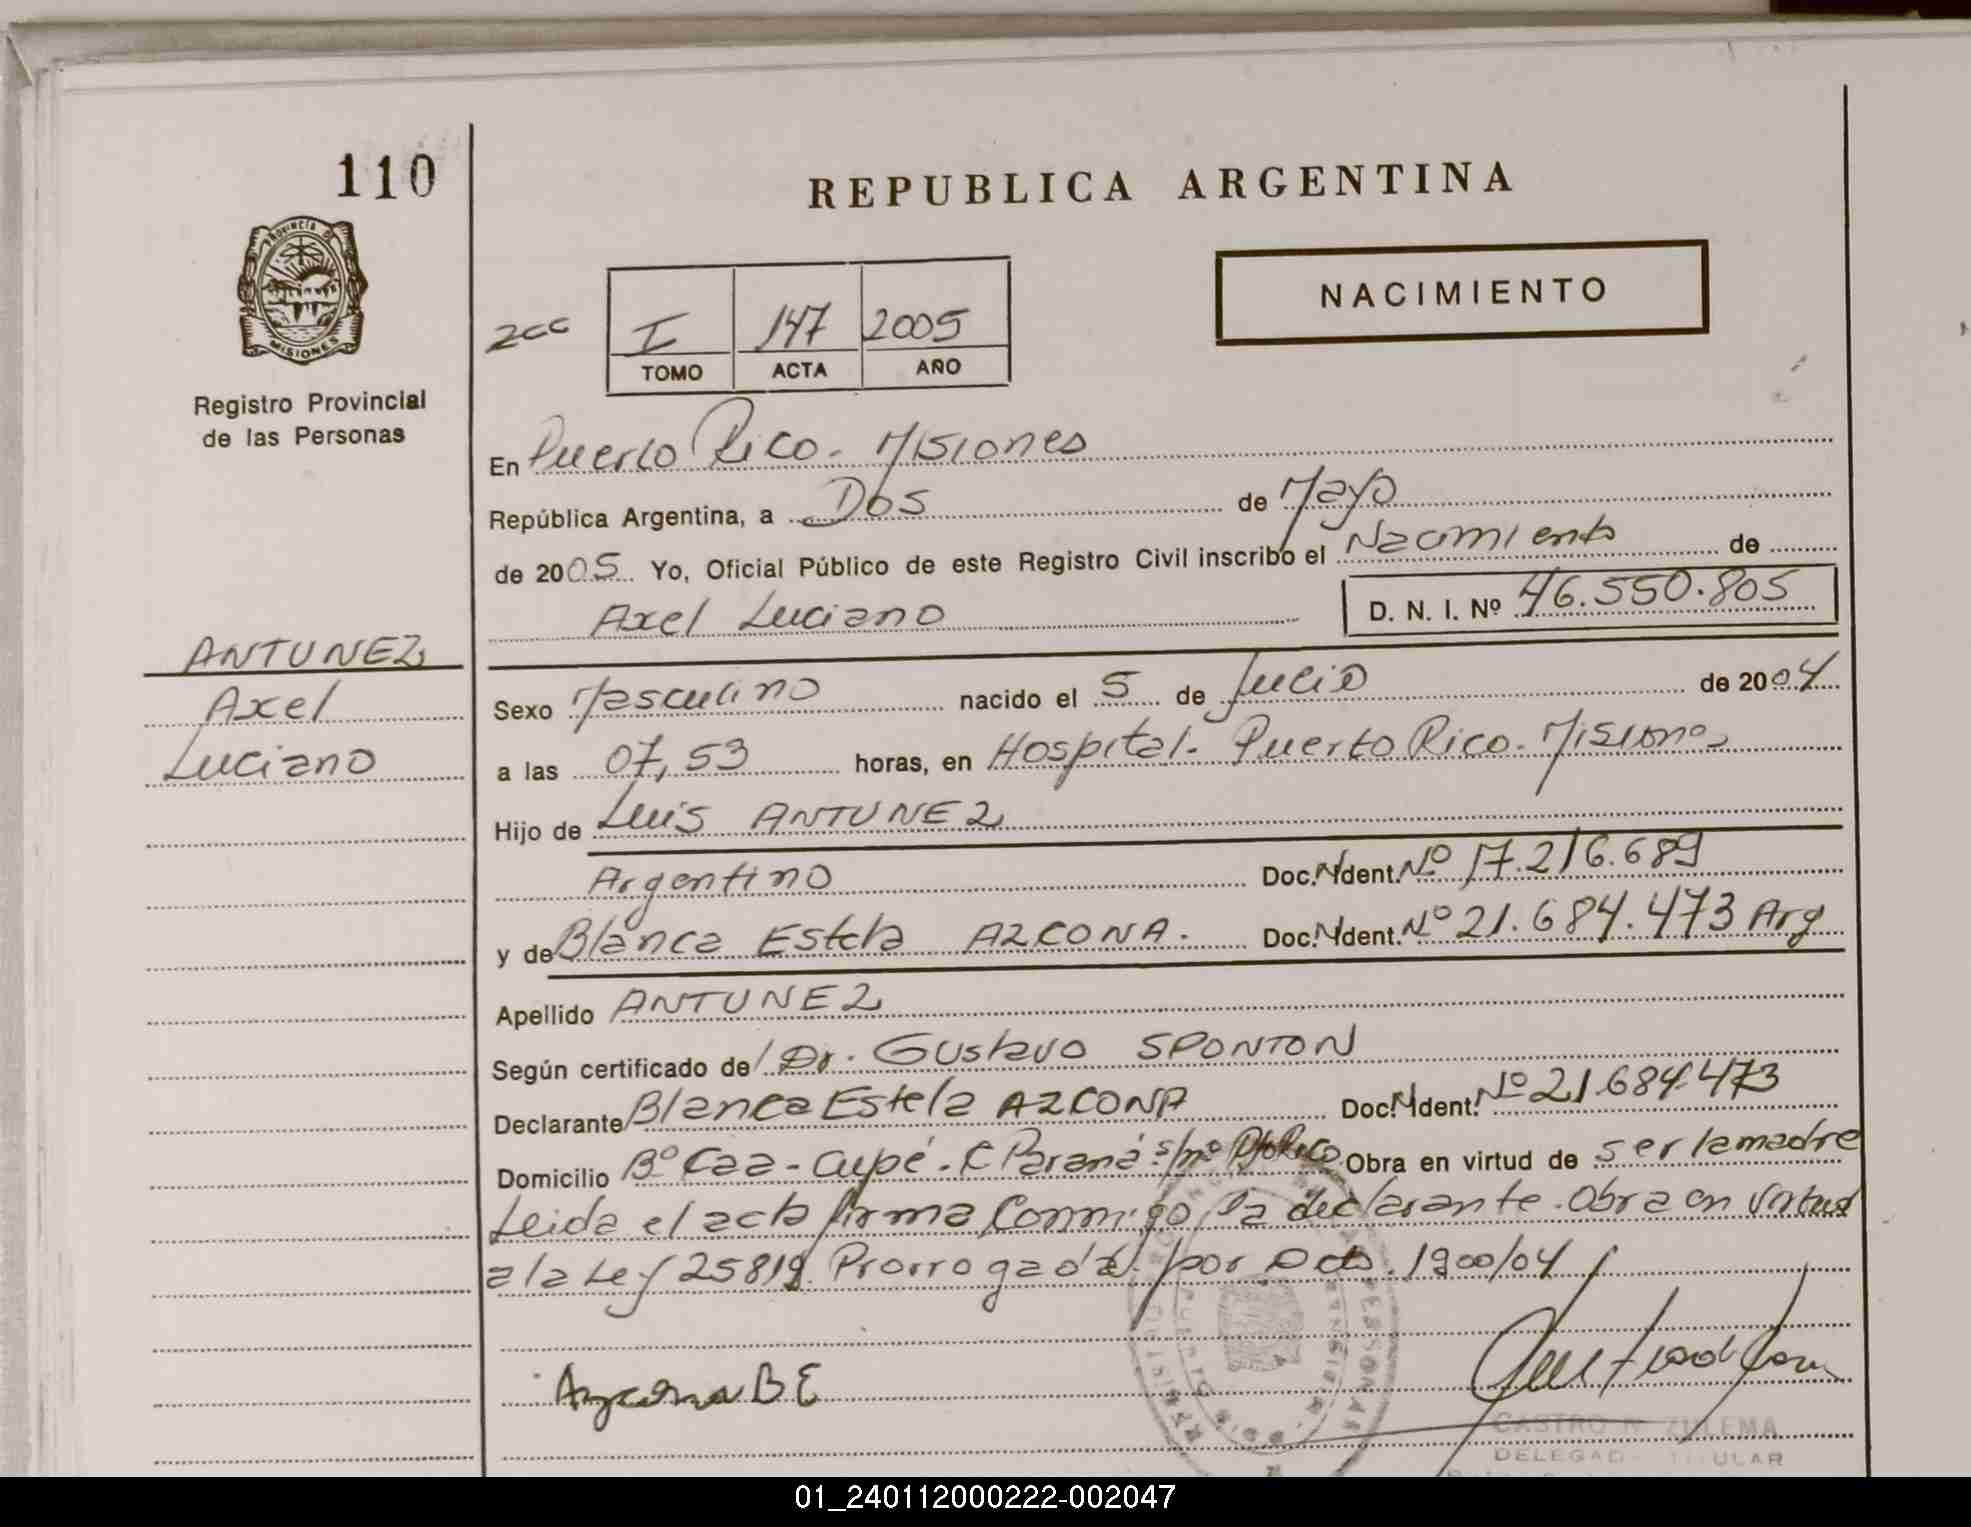 110
REPUBLICA ARGENTINA
PROVINCIA DE
MISIONES
NACIMIENTO
2cc
I 147 2005
TOMO ACTA AÑO
Registro Provincial
de las Personas
En Puerto Rico. Misiones
República Argentina, a Dos de Mayo
de 2005 Yo, Oficial Público de este Registro Civil inscribo el Nacimiento de
Axel Luciano D. N. I. Nº 46.550.805
ANTUNEZ
Axel
Luciano
Sexo Masculino nacido el 5 de Julio de 2004
a las 07,53 horas, en Hospital. Puerto Rico. Misiones
Hijo de Luis ANTUNEZ
Argentino Doc. Ident. Nº 17.216.689
y de Blanca Estela AZCONA. Doc. Ident. Nº 21.684.473 Arg
Apellido ANTUNEZ
Según certificado de Dr. Gustavo SPONTON
Declarante Blanca Estela AZCONA Doc. Ident. Nº 21.684.473
Domicilio Bº Caa-Cupé. C Paraná s/nº Pto Rico Obra en virtud de ser la madre
Leida el acta firma conmigo la declarante. Obra en virtud
a la Ley 25819 Prorrogada por Dcto. 1900/04
Azcona B E
CASTRO N. ZULEMA
DELEGAD TITULAR
01_240112000222-002047